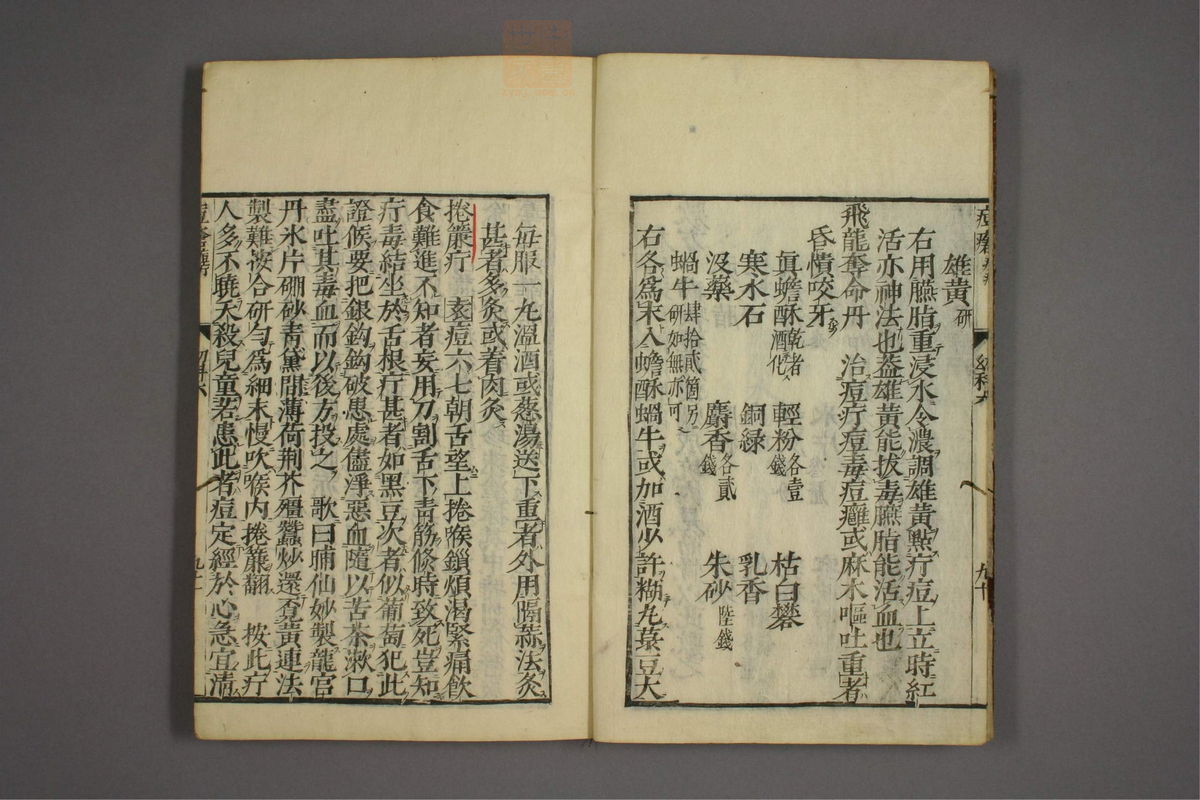 雄黃研
右用臙脂重浸水令濃調雄黃㸃疔痘上立時紅
活亦神法也葢雄黃能拔毒臙脂能活血也
飛龍奪命丹 治痘疔痘毒痘癰或麻木嘔吐重者
昏憒咬牙
眞蟾酥乾者酒化 輕粉各壹錢 枯白礬
寒水石 銅綠 乳香
沒藥 麝香各貳錢 朱砂陸錢
蝸牛肆拾貳箇另研如無亦可
右各爲末入蟾酥蝸牛或加酒少許糊丸菉豆大
每服一丸溫酒或葱湯送下重者外用隔蒜法灸
甚者多灸或着肉灸
捲簾疔 玄痘六七朝舌埜上捲喉鎖煩渴緊痛飲
食難進不知者妄用刀割舌下靑筋倏時致死豈知
疔毒結坐於舌根疔甚者如黑豆次者似葡萄犯此
證候要把銀鈎鈎破患處儘淨惡血隨以苦茶漱口
盡吐其毒血而以後方投之 歌曰 仙妙製龍宮
丹氷片硼砂靑黛間薄荷荆芥殭蠶炒還香黃連法
製難按合研勻爲細末慢吹喉內捲簾翻 按此疔
人多不曉夭殺兒童若患此者痘定經於心急宜淸